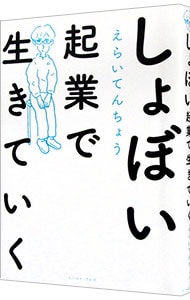 しょぼい
起業で
生きていく
えらいてんちょう
しょぼい起業で生きていく